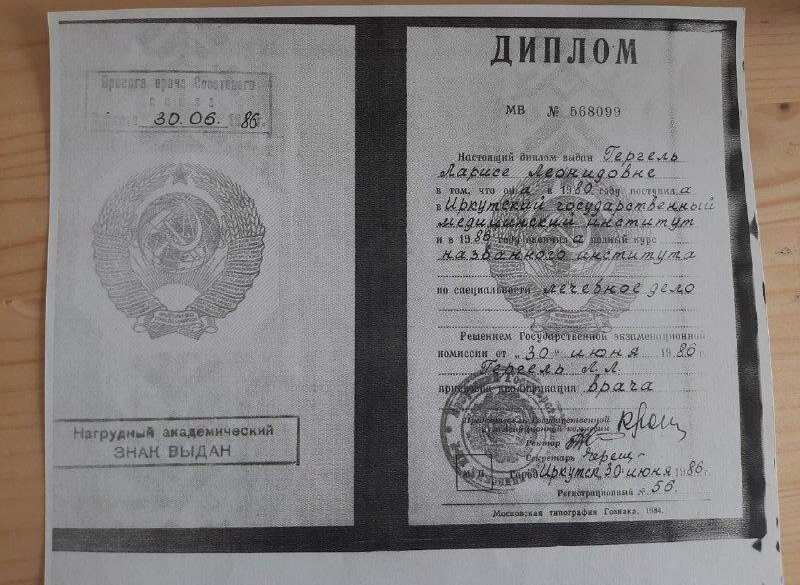 Присяга врача Советского
Союза
30.06. 1986.
Нагрудный академический
ЗНАК ВЫДАН
ДИПЛОМ
МВ № 568099
Настоящий диплом выдан Гергель
Ларисе Леонидовне
в том, что она в 1980 году поступила
в Иркутский государственный
медицинский институт
и в 1986 году окончила полный курс
названного института
по специальности лечебное дело
Решением Государственной экзаменационной
комиссии от „30“ июня 1986 г.
Гергель Л.Л.
присвоена квалификация врача
Председатель Государственной
экзаменационной комиссии
Ректор
Секретарь
Город Иркутск 30 июня 1986 г.
Регистрационный № 56.
Московская типография Гознака. 1984.